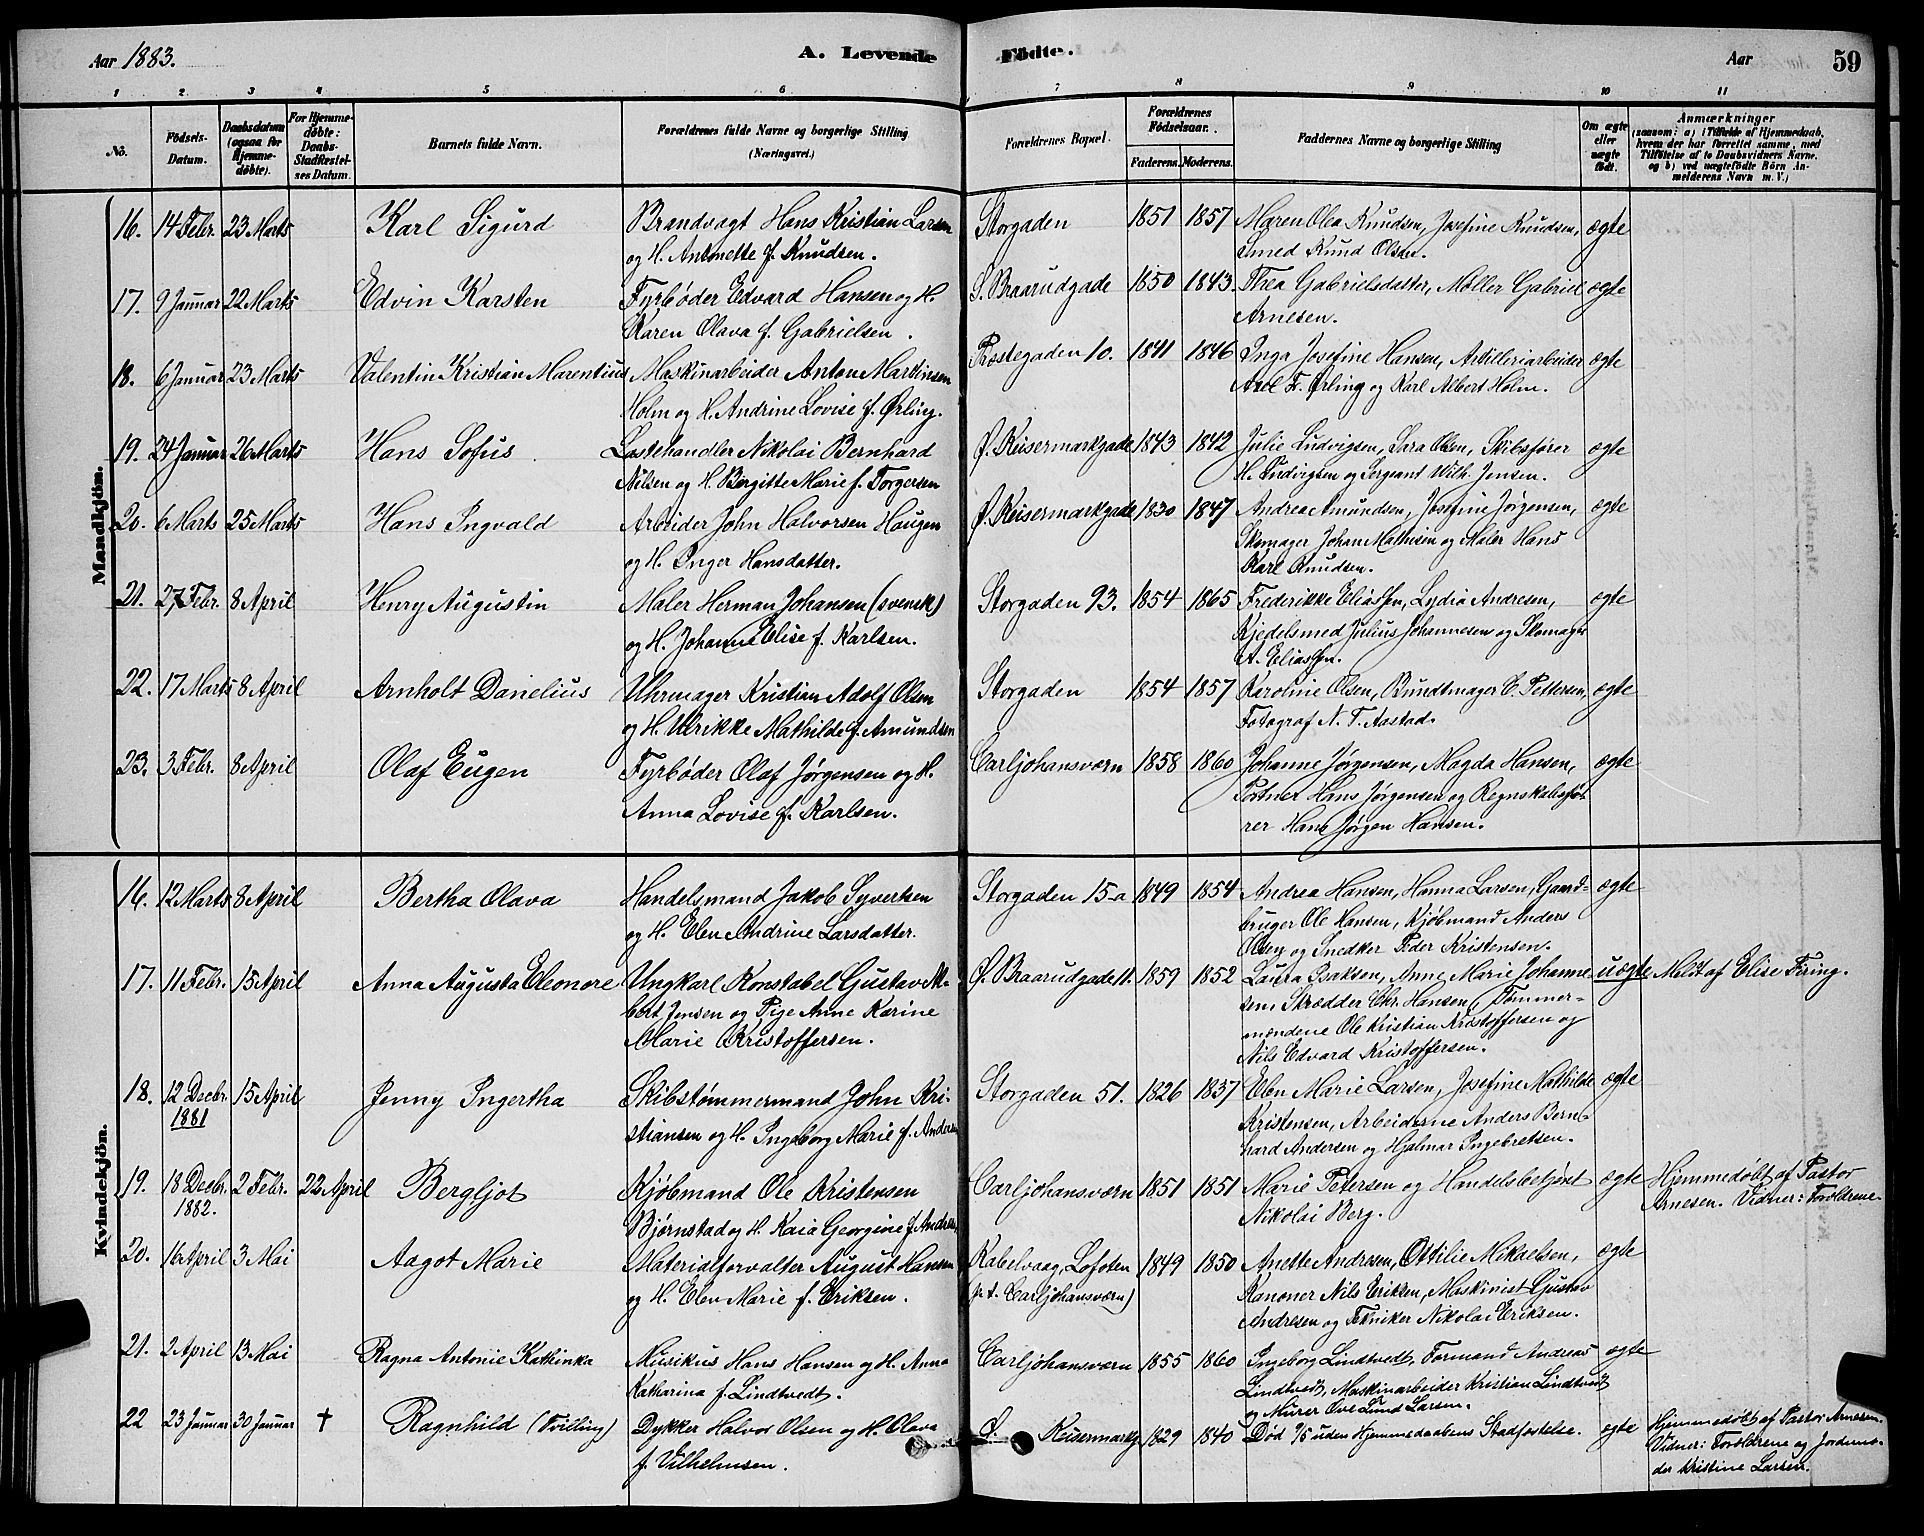 Aar 1883.
A. Levende Fødte.
Aar
59
1 2 3 4 5 6 7 8 9 10 11
No.
Födsels-Datum.
Daabsdatum (ogsaa for Hjemme-døbte).
For Hjemme-døbte: Daabs-Stadfæstel-ses Datum.
Barnets fulde Navn.
Forældrenes fulde Navne og borgerlige Stilling (Næringsvei.)
Forældrenes Bopæl.
Forældrenes Fødselsaar.
Faderens. Moderens.
Faddernes Navne og borgerlige Stilling
Om ægte eller uægte født.
Anmærkninger
(saasom: a) i Tilfælde af Hjemmedaab,
hvem der har forrettet samme, med
Tilföielse af to Daabsvidners Navne,
og b) ved uægtefödte Börn An-
melderens Navn m. V.)
Mandkjön.
16. 14 Febr. 23 Marts Karl Sigurd Brandvagt Hans Kristian Larsen Storgaden 1851 1857 Maren Olea Knudsen, Josefine Knudsen, ægte
og H. Antonette f. Knudsen. Smed Knud Olsen.
17. 9 Januar 22 Marts Edvin Karsten Fyrbøder Edvard Hansen og H. Ø. Braarudgade 1850 1843. Thea Gabrielsdatter, Møller Gabriel ægte
Karen Olava f. Gabrielsen. Arnesen.
18. 6 Januar 23 Marts Valentin Kristian Marentius Maskinarbeider Anton Martinsen Præstegaden 10. 1841 1846 Inga Josefine Hansen, Artilleriarbeider ægte
Holm og H. Andrine Lovise f. Ørling. Axel F. Ørling og Karl Albert Holm.
19. 24 Januar 26 Marts Hans Sofus Lastehandler Nikolai Bernhard Ø. Keisermarkgade 1843 1842 Julie Ludvigsen, Sara Olsen, Skibsfører ægte
Nilsen og H. Birgitte Marie f. Torgersen H. Ludvigsen og Sergeant Wilh. Jensen.
20. 6 Marts 25 Marts Hans Ingvald Arbeider John Halvorsen Haugen Ø. Keisermarkgade 1830 1847 Andrea Amundsen, Josefine Jørgensen, ægte
og H. Inger Hansdatter. Skomager Johan Mathisen og Maler Hans
Karl Knudsen.
21. 27 Febr. 8 April Henry Augustin Maler Herman Johansen (svensk) Storgaden 93. 1854 1865 Frederikke Eliassen, Lydia Andresen, ægte
og H. Johanne Elise f. Karlsen. Kjedelsmed Julius Johannesen og Skomager
A. Eliassen.
22. 17 Marts 8 April Arnholt Danelius Uhrmager Kristian Adolf Olsen Storgaden 1854 1857 Karoline Olsen, Bundtmager C. Pettersen, ægte
og H. Ulrikke Mathilde f. Amundsen Fotograf N. T. Aastad.
23. 3 Febr. 8 April Olaf Eugen Fyrbøder Olaf Jørgensen og H. Carljohansværn 1858 1860 Johanne Jørgensen, Magda Hansen, ægte
Anna Lovise f. Karlsen. Portner Hans Jørgensen og Regnskabsfø-
rer Hans Jørgen Hansen.
Kvindekjön.
16. 12 Marts 8 April Bertha Olava Handelsmand Jakob Syvertsen Storgaden 15-a 1849 1854 Andrea Hansen, Hanna Larsen, Gaard- ægte
og H. Elen Andrine Larsdatter. bruger Ole Hansen, Kjøbmand Anders
Olsen og Snedker Peder Kristensen.
17. 11 Febr. 15 April Anna Augusta Eleonore Ungkarl Konstabel Gustav Al- Ø. Braarudgade 11. 1859 1852 Laura Isaksen, Anne Marie Johanne- uægte Meldt af Elise Firing.
bert Jensen og Pige Anne Karine sen, Skrædder Chr. Hansen, Tømmer-
Marie Kristoffersen. mændene Ole Kristian Kristoffersen og
Nils Edvard Kristoffersen.
18. 12 Decbr. 15 April Jenny Ingertha Skibstømmermand John Kri- Storgaden 51. 1826 1837 Elen Marie Larsen, Josefine Mathilde ægte
1881 stiansen og H. Ingeborg Marie f. Andersen Kristensen, Arbeiderne Anders Bern-
hard Andersen og Hjalmar Ingebretsen.
19. 18 Decbr. 2 Febr. 22 April Bergljot Kjøbmand Ole Kristensen Carljohansværn 1851 1851 Marie Petersen og Handelsbetjent ægte Hjemmedøbt af Pastor
1882. Bjørnstad og H. Kaia Georgine f. Nikolai Berg. Arnesen. Vidner: Forældrene.
20. 16 April 3 Mai Aagot Marie Materialforvalter August Hansen Kabelvaag, Lofoten 1849 1850 Anette Andresen, Ottilie Mikaelsen, ægte
og H. Elen Marie f. Eriksen. (p.t. Carljohansværn) Kanoner Nils Eriksen, Maskinist Gustav
Andresen og Tekniker Nikolai Eriksen.
21. 2 April 13 Mai Ragna Antonie Kathinka Musikus Hans Hansen og H. Anna Carljohansværn 1855 1860 Ingeborg Lindtvedt, Formand Andreas ægte
Katharina f. Lindtvedt. Lindtvedt, Maskinarbeider Kristian Lindtvedt
og Murer Ove Lund Larsen.
22 23 Januar 30 Januar † Ragnhild (Tvilling) Dykker Halvor Olsen og H. Olava Ø. Keisermarkg 1829 1840 Død 9/5 uden Hjemmedaabens Stadfæstelse. ægte Hjemmedøbt af Pastor Arnesen.
f. Vilhelmsen. Vidner: Forældrene og Jordemo-
der Kristine Larsen.